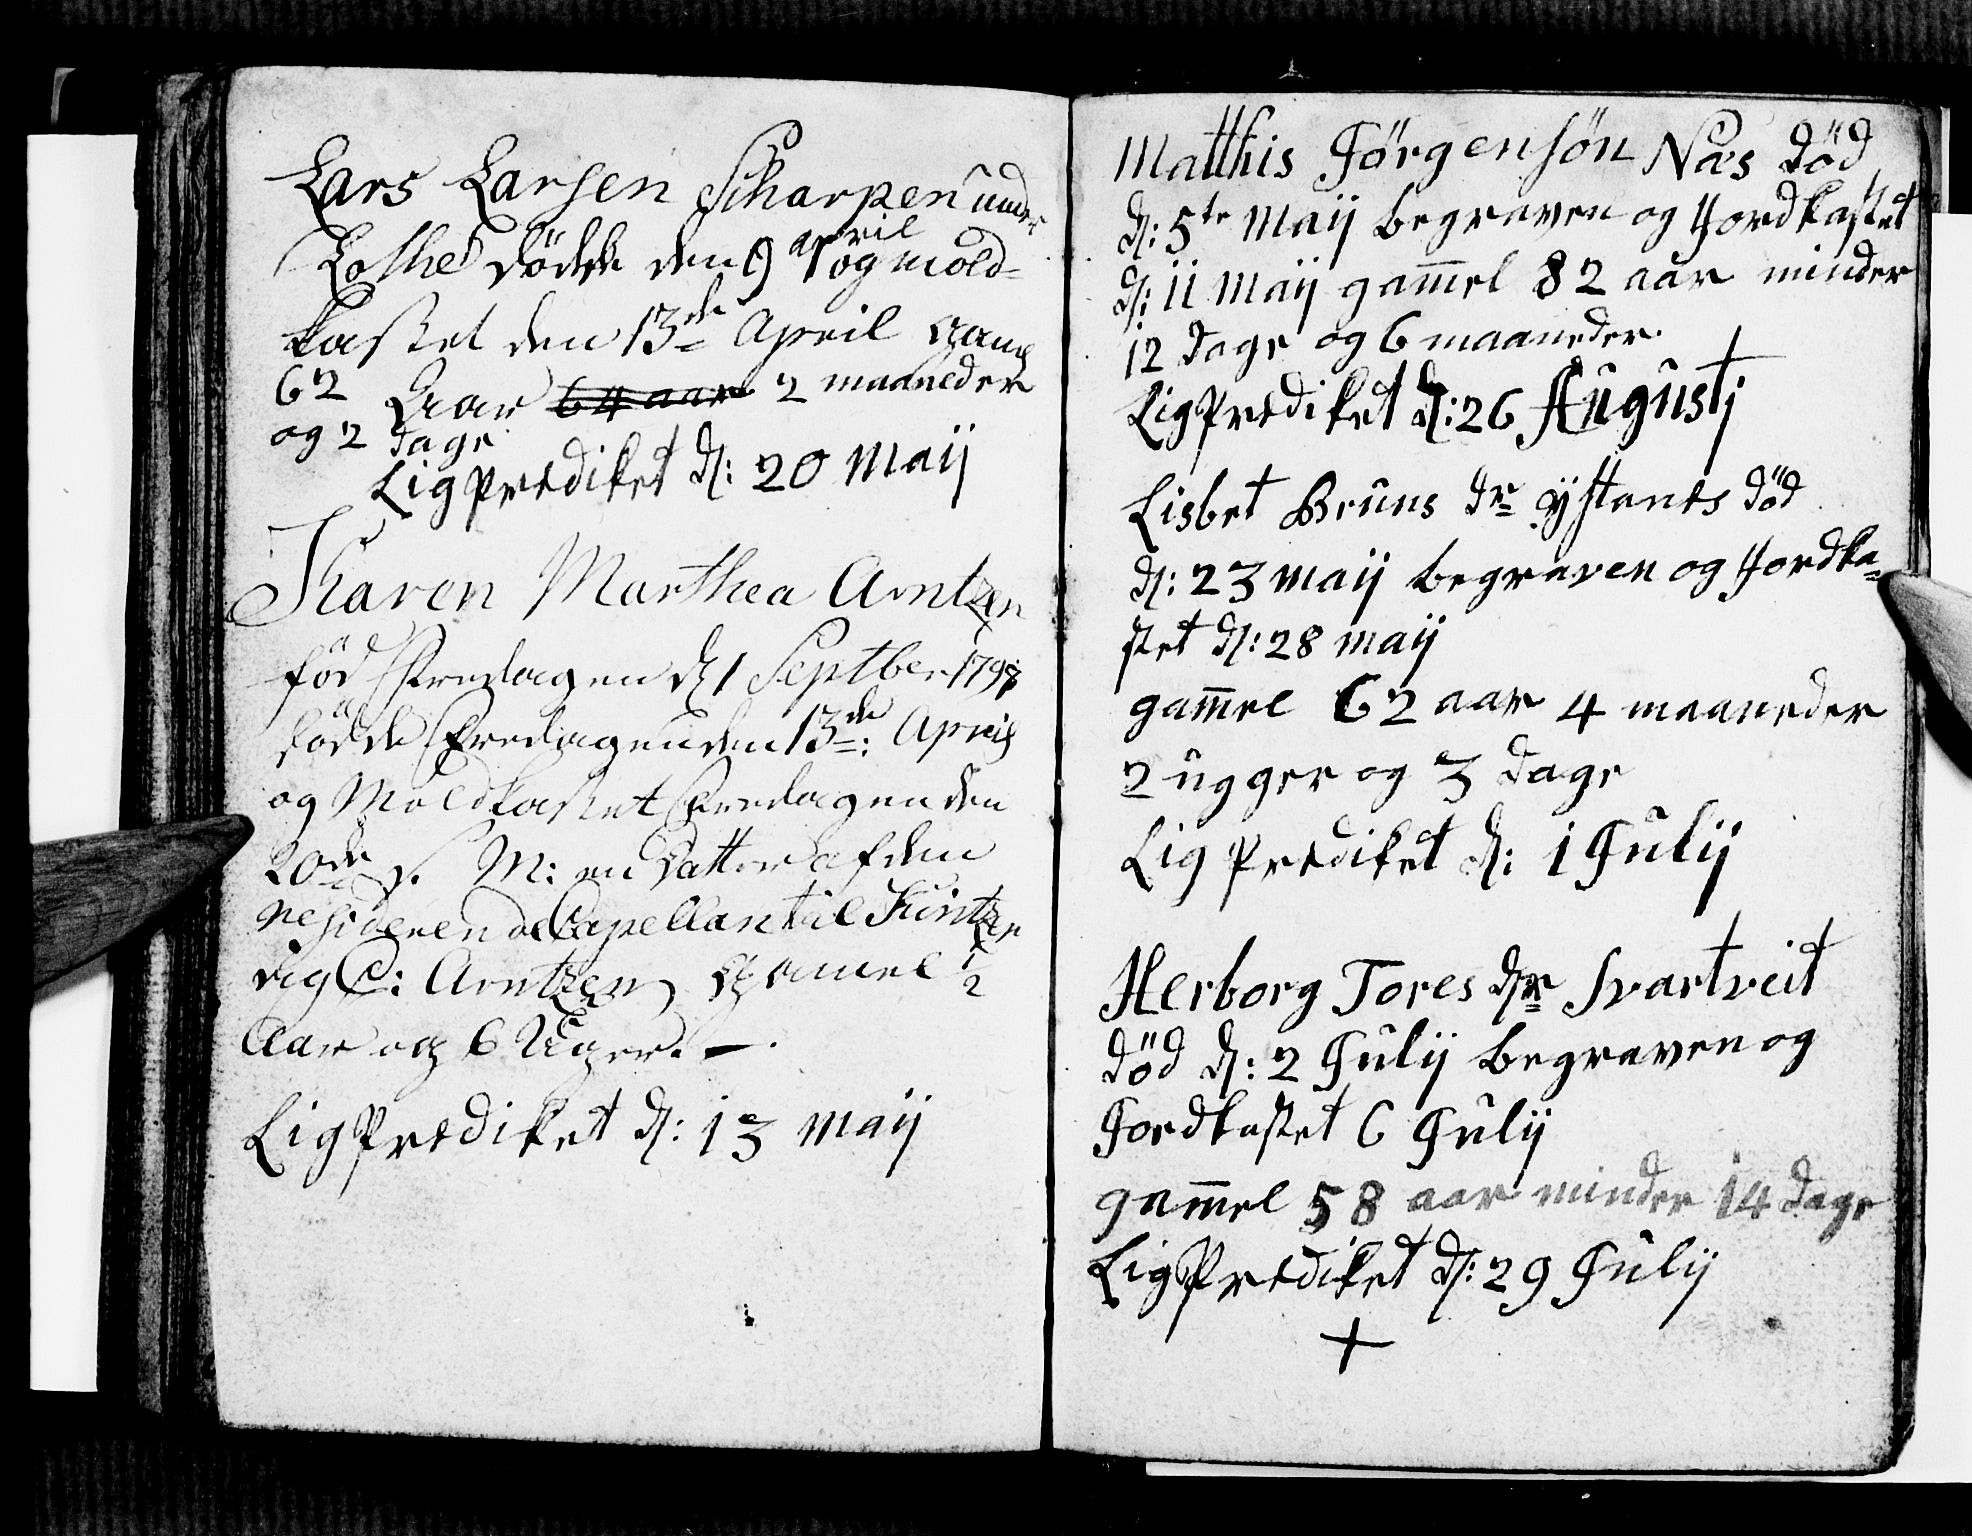 Lars Larsen Scharpen under
Lothe dødde den 9 april og mold-
kastet den 13de April gaml
62 Aar 64 aar 2 maaneder
og 2 dage
Lig prediket d: 20 Maij
Karen Marthea Arntzen
fød Fredagen d 1 Septber 1797
dødde Fredagen den 13de: April
og Moldkastet Fredagen den
20de s. M: en Datter af den
residerende Capellan til Kintzer
vig C: Arntzen gamel 1/2
Aar og 6 Uger. —.
Lig Prediket d: 13 maij
Matthis Jørgensøn Næs død
d: 5te Maij begraven og Jordkastet
d: 11 Maij gam̅el 82 aar minder
12 dage og 6 maaneder.
Lig Prediket d: 26 Augustj
Lisbet Bruns dr ÿstanes død
d: 23 maij begraven og Jordka-
stet d: 28 maij
gam̅el 62 aar 4 maaneder
2 ugger og 3 dage
Lig Prediket d: 1 Julij
Herborg Tores dr Svartveit
død d: 2 Julij begraven og
Jordkastet 6 Julij
gam̅el 58 aar minder 14 dage
Lig Prediket d: 29 Julij
+